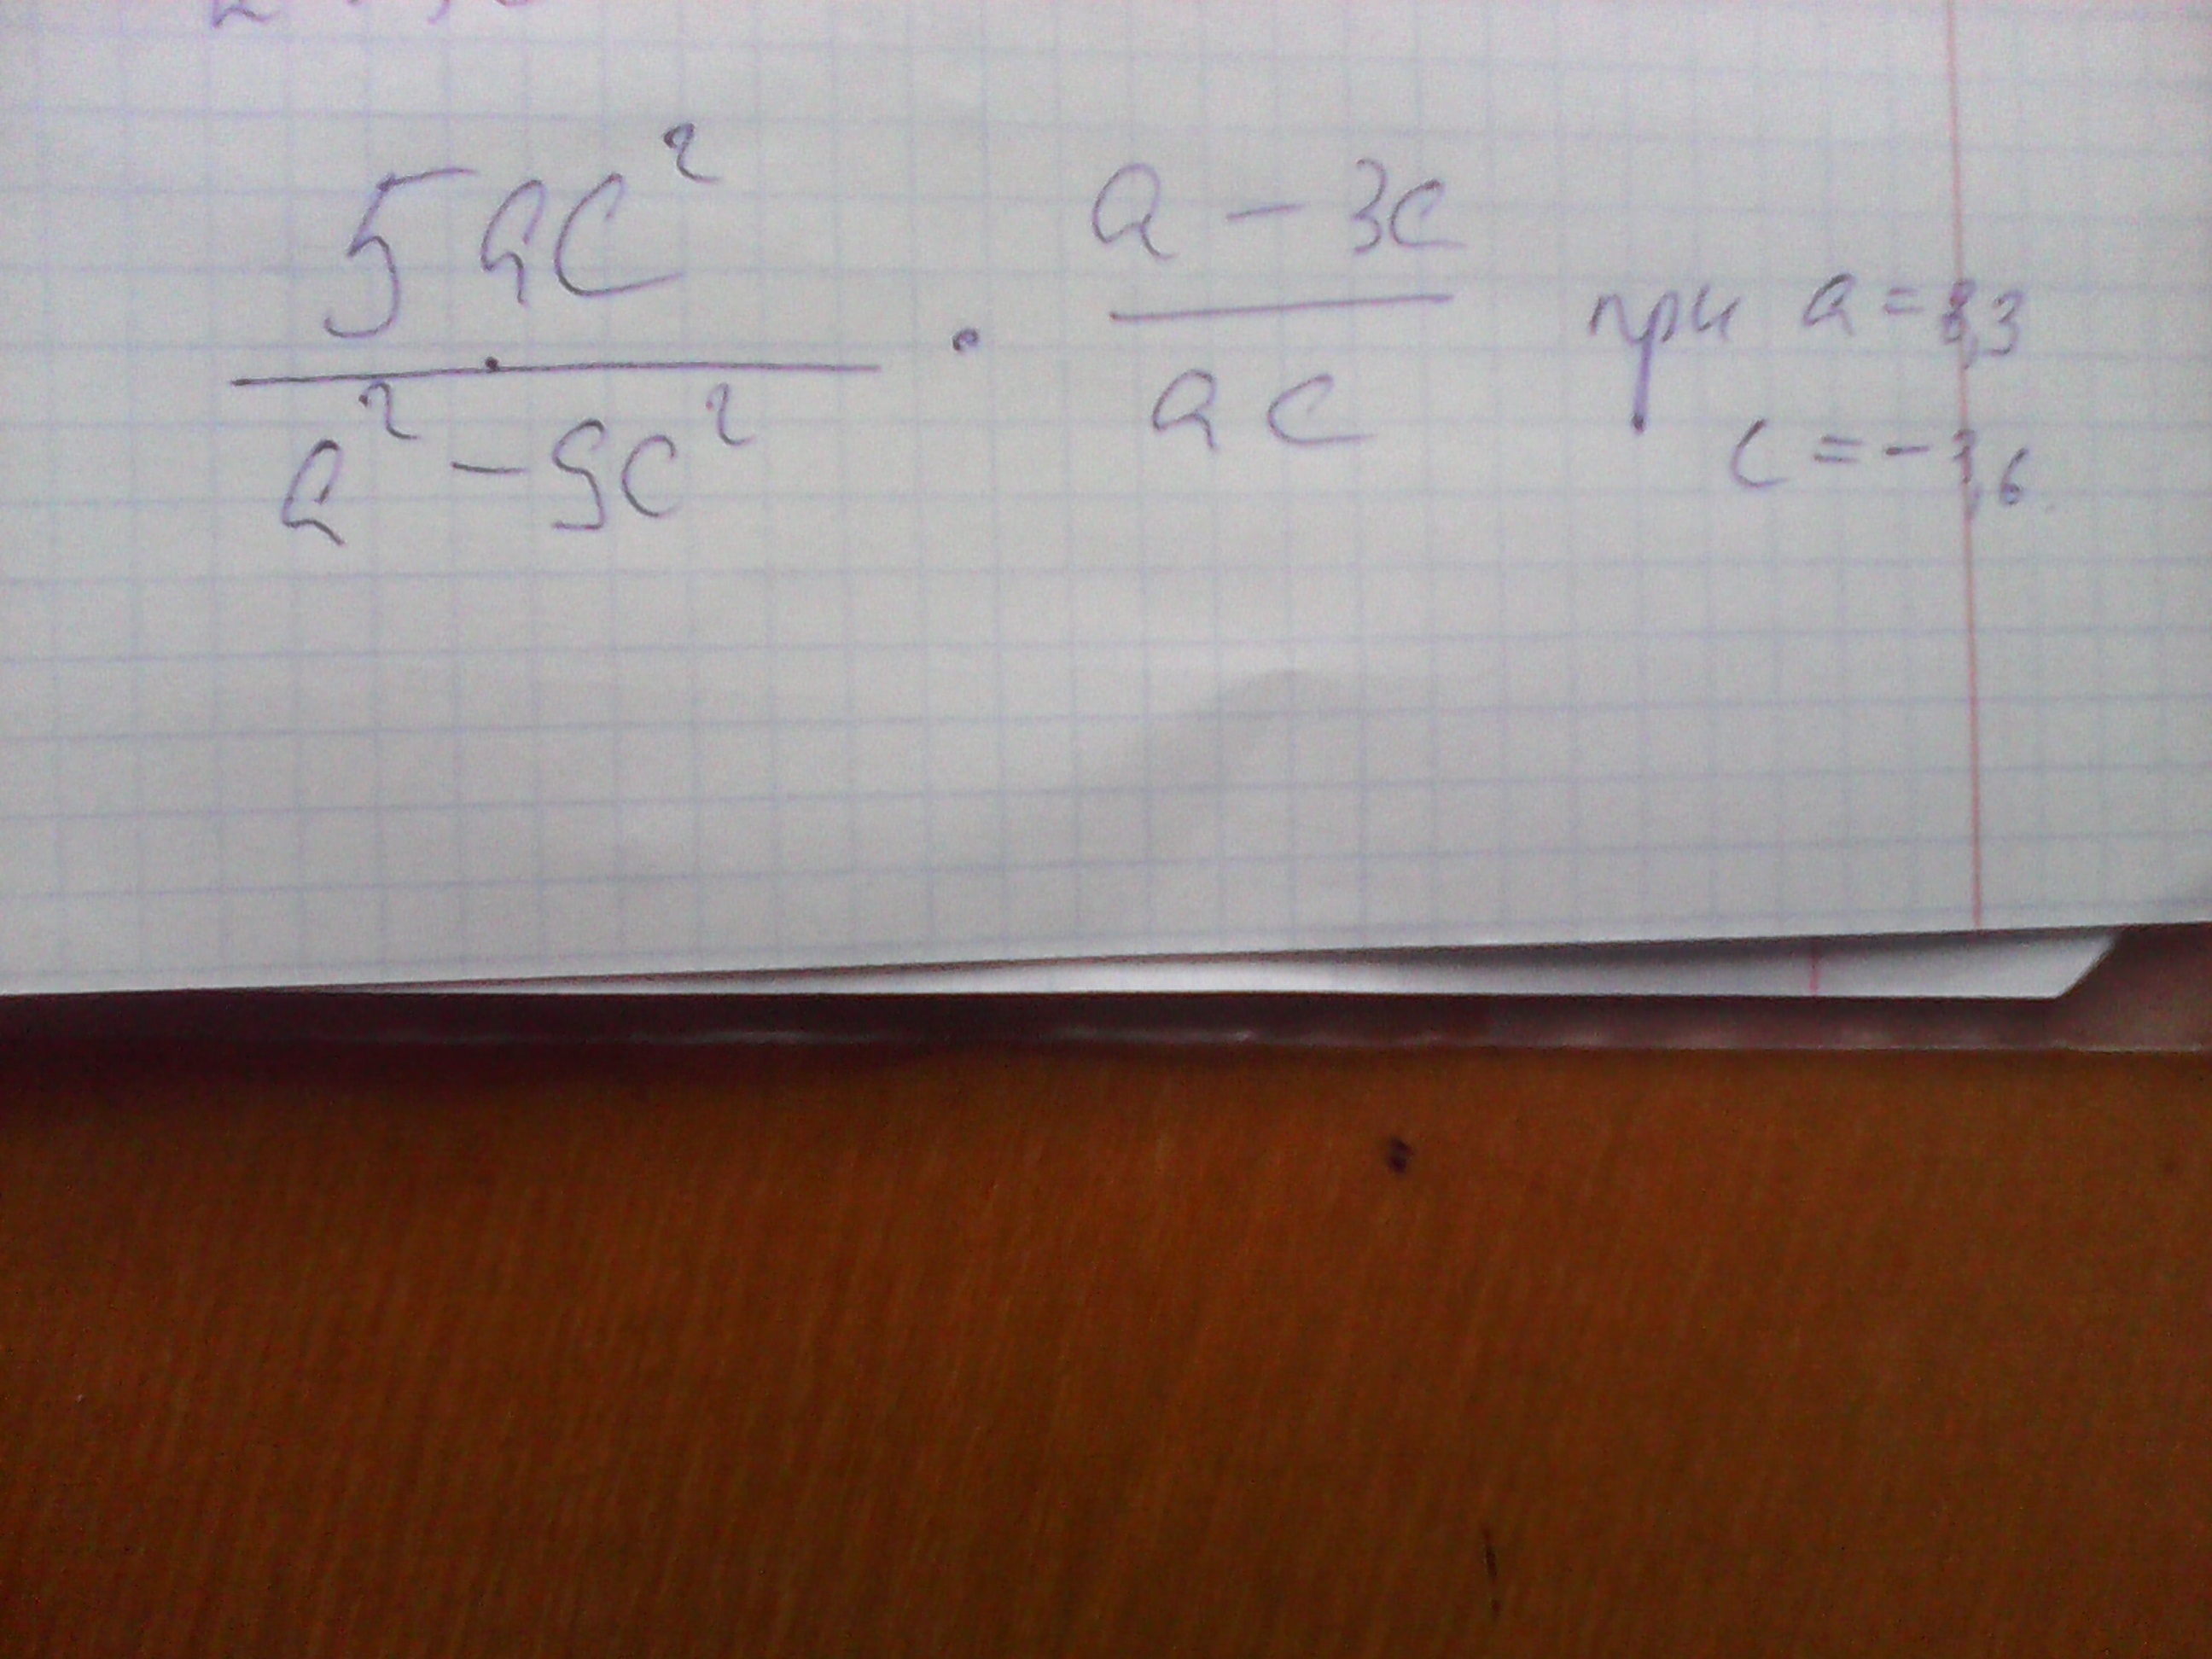 5ac² / a² - 9c² · a - 3c / ac при a = 8,3
c = - 1,6